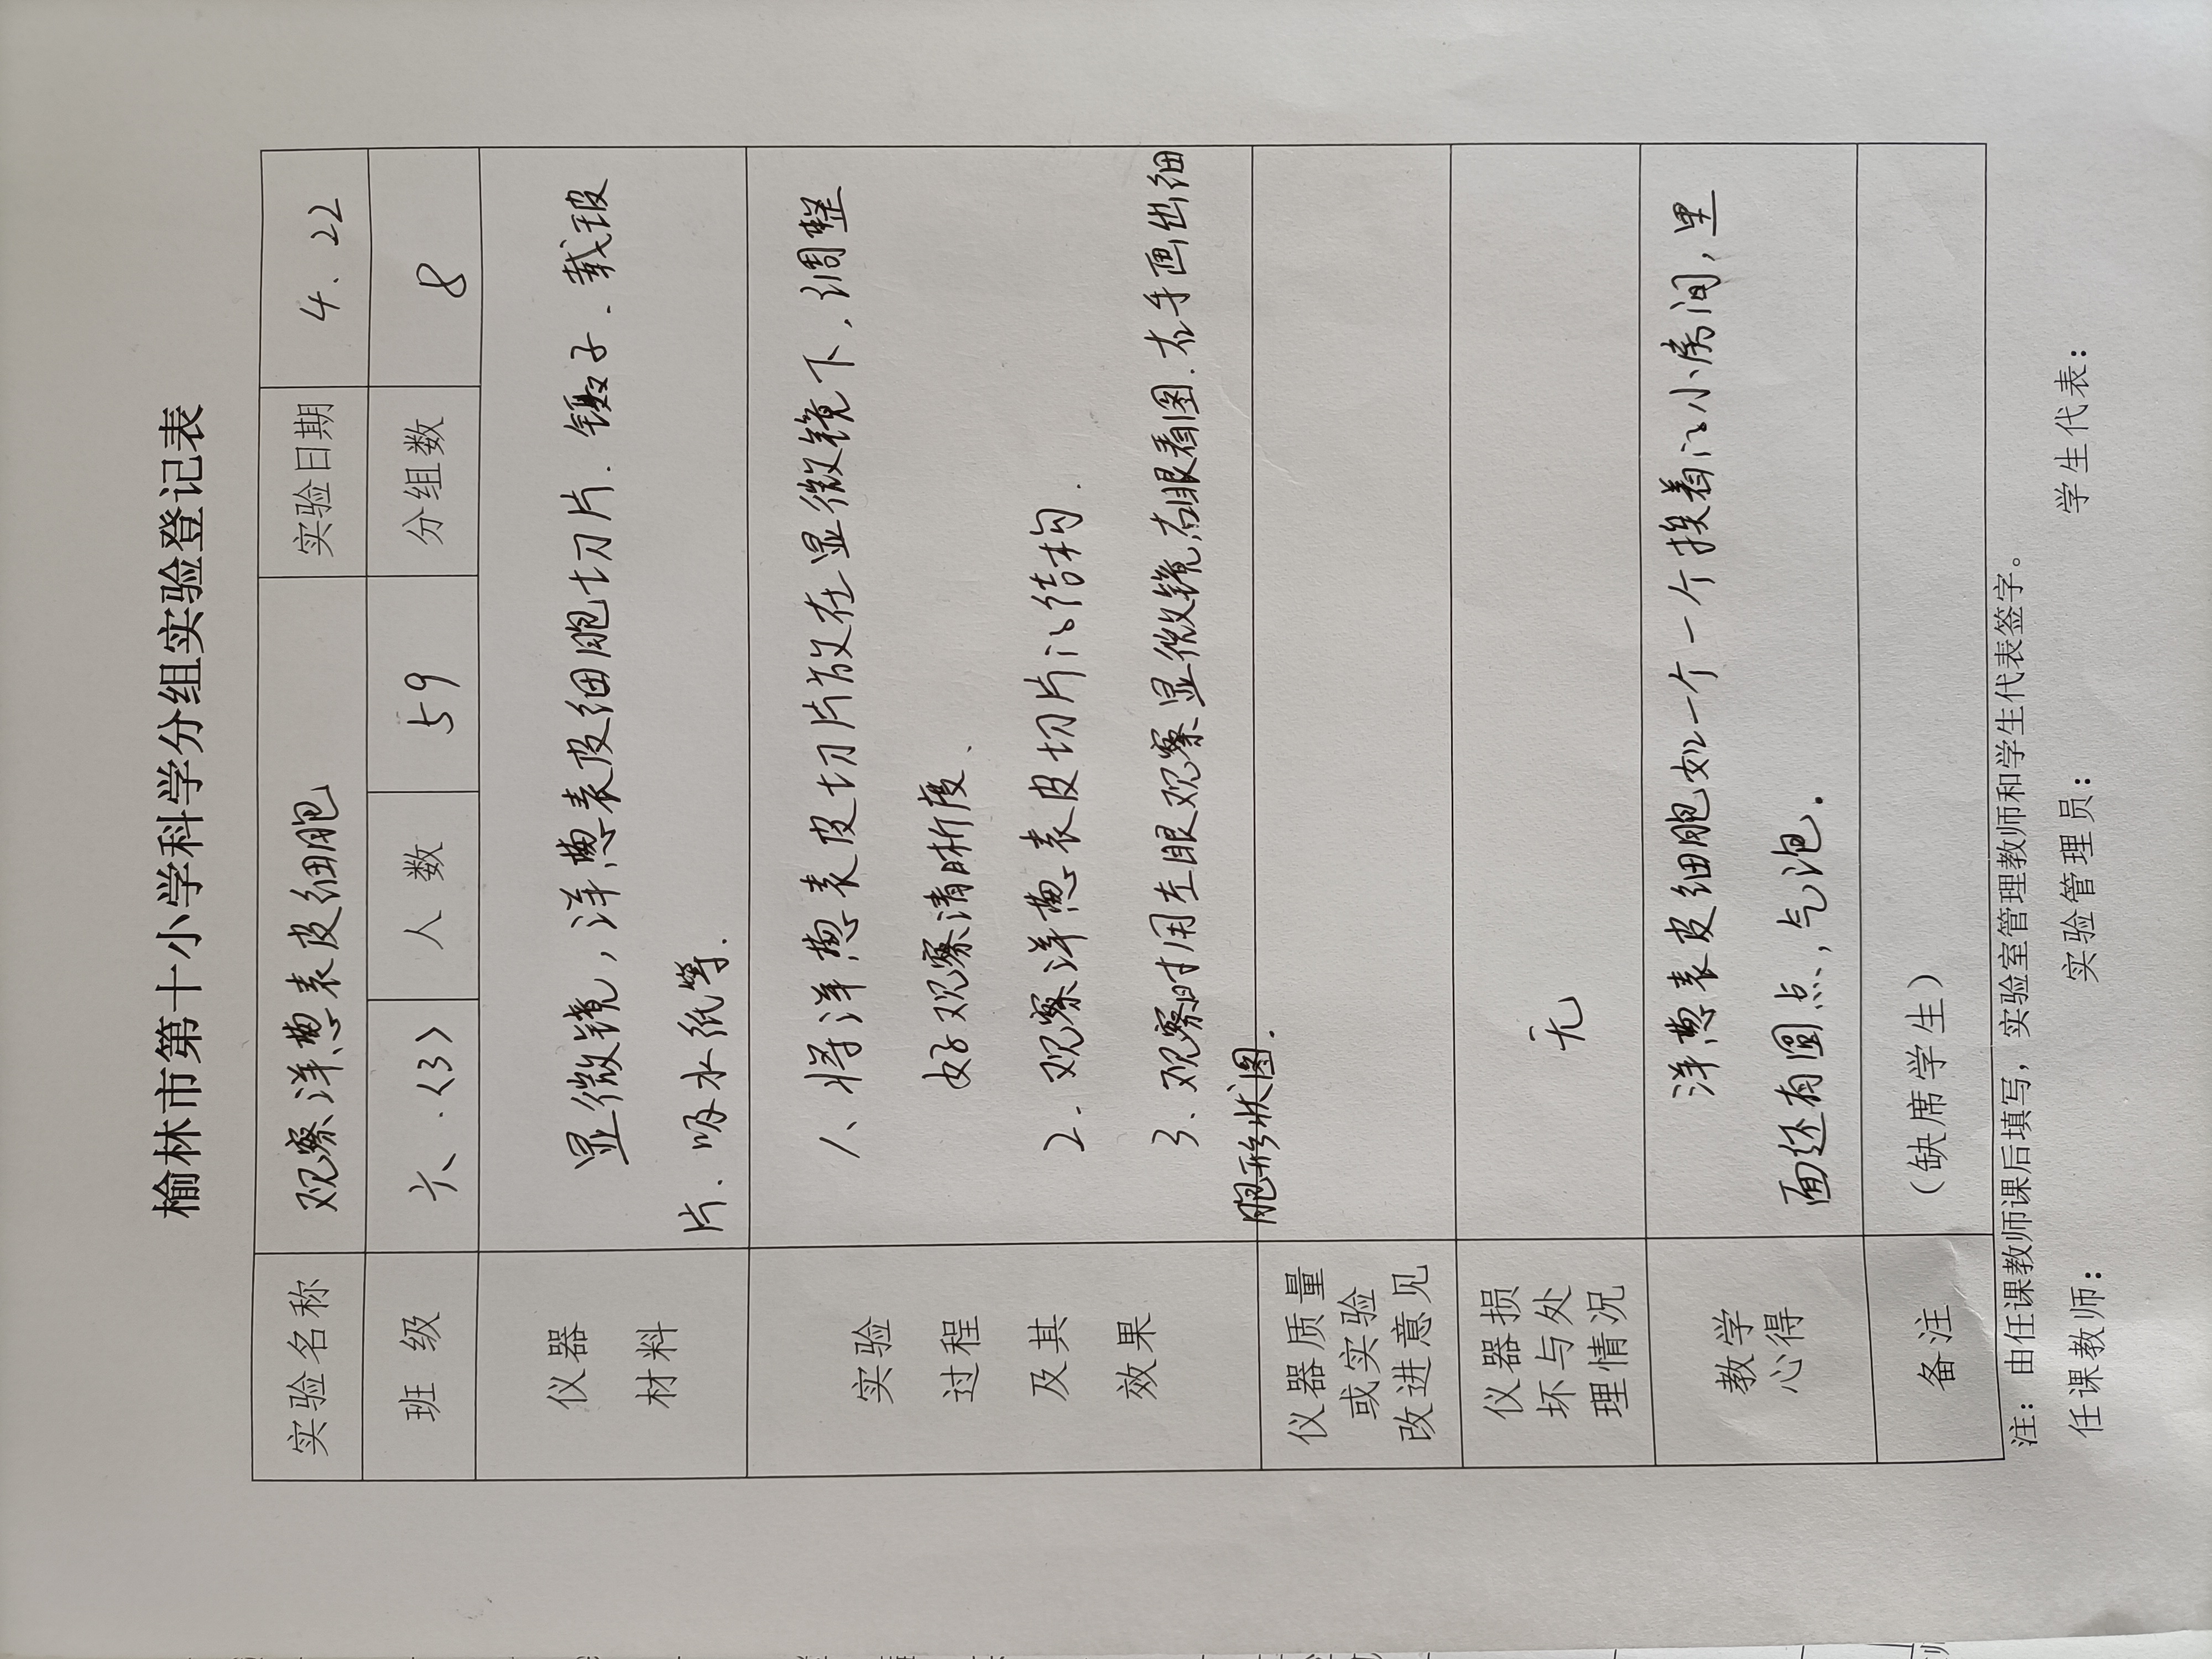 榆林市第十小学科学分组实验登记表
实验名称 观察洋葱表皮细胞 实验日期 4、22
班 级 六、(3) 人 数 59 分组数 8
仪器
材料
显微镜,洋葱表皮细胞切片.镊子.载玻
片、吸水纸等.
实验
过程
及其
效果
1、将洋葱表皮切片放在显微镜下,调整
好观察清晰度、
2. 观察洋葱表皮切片的结构.
3、观察时用左眼观察显微镜,右眼看图.右手画出细
胞形状图.
仪器质量
或实验
改进意见
仪器损
坏与处
理情况
无
教学
心得
洋葱表皮细胞如一个一个挨着的小房间,里
面还有圆点,气泡.
备注 (缺席学生)
注:由任课教师课后填写,实验室管理教师和学生代表签字。
任课教师: 实验管理员: 学生代表: